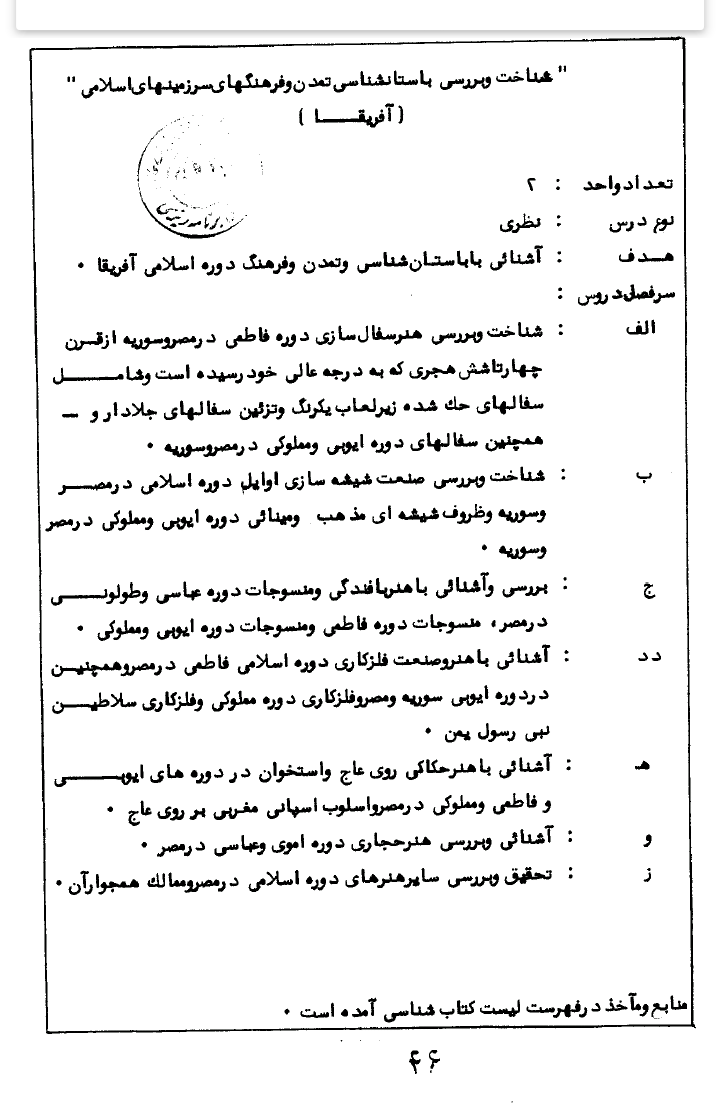 " شناخت وبررسی باستانشناسی تمدن وفرهنگهای سرزمینهای اسلامی "
( آفریقــــا )
برنامه ریزی
تعداد واحد : ۲
نوع درس : نظری
هـدف : آشنائی باباستان‌شناسی وتمدن وفرهنگ دوره اسلامی آفریقا ۰
سرفصل دروس :
الف : شناخت وبررسی هنرسفال سازی دوره فاطمی درمصروسوریه ازقـرن
چهارتاشش هجری که به درجه عالی خود رسیده است وشامـــــل
سفالهای حك شده زیرلعاب یکرنگ وتزئین سفالهای جلادار و ــ
همچنین سفالهای دوره ایوبی ومملوکی درمصروسوریه ۰
ب : شناخت وبررسی صنعت شیشه سازی اوایل دوره اسلامی درمصـــر
وسوریه وظروف شیشه ای مذهب ومینائی دوره ایوبی ومملوکی درمصر
وسوریه ۰
ج : بررسی وآشنائی باهنربافندگی ومنسوجات دوره عباسی وطولونـــی
درمصر، منسوجات دوره فاطمی ومنسوجات دوره ایوبی ومملوکی ۰
دد : آشنائی باهنروصنعت فلزکاری دوره اسلامی فاطمی درمصروهمچنیـن
دردوره ایوبی سوریه ومصروفلزکاری دوره مملوکی وفلزکاری سلاطیـــن
نبی رسول یمن ۰
هـ : آشنائی باهنرحکاکی روی عاج واستخوان در دوره های ایوبــــی
و فاطمی ومملوکی درمصرواسلوب اسپانی مغربی بر روی عاج ۰
و : آشنائی وبررسی هنرحجاری دوره اموی وعباسی درمصر ۰
ز : تحقیق وبررسی سایرهنرهای دوره اسلامی درمصروممالك همجوارآن ۰
منابع ومآخذ درفهرست لیست کتاب شناسی آمده است ۰
۴۶